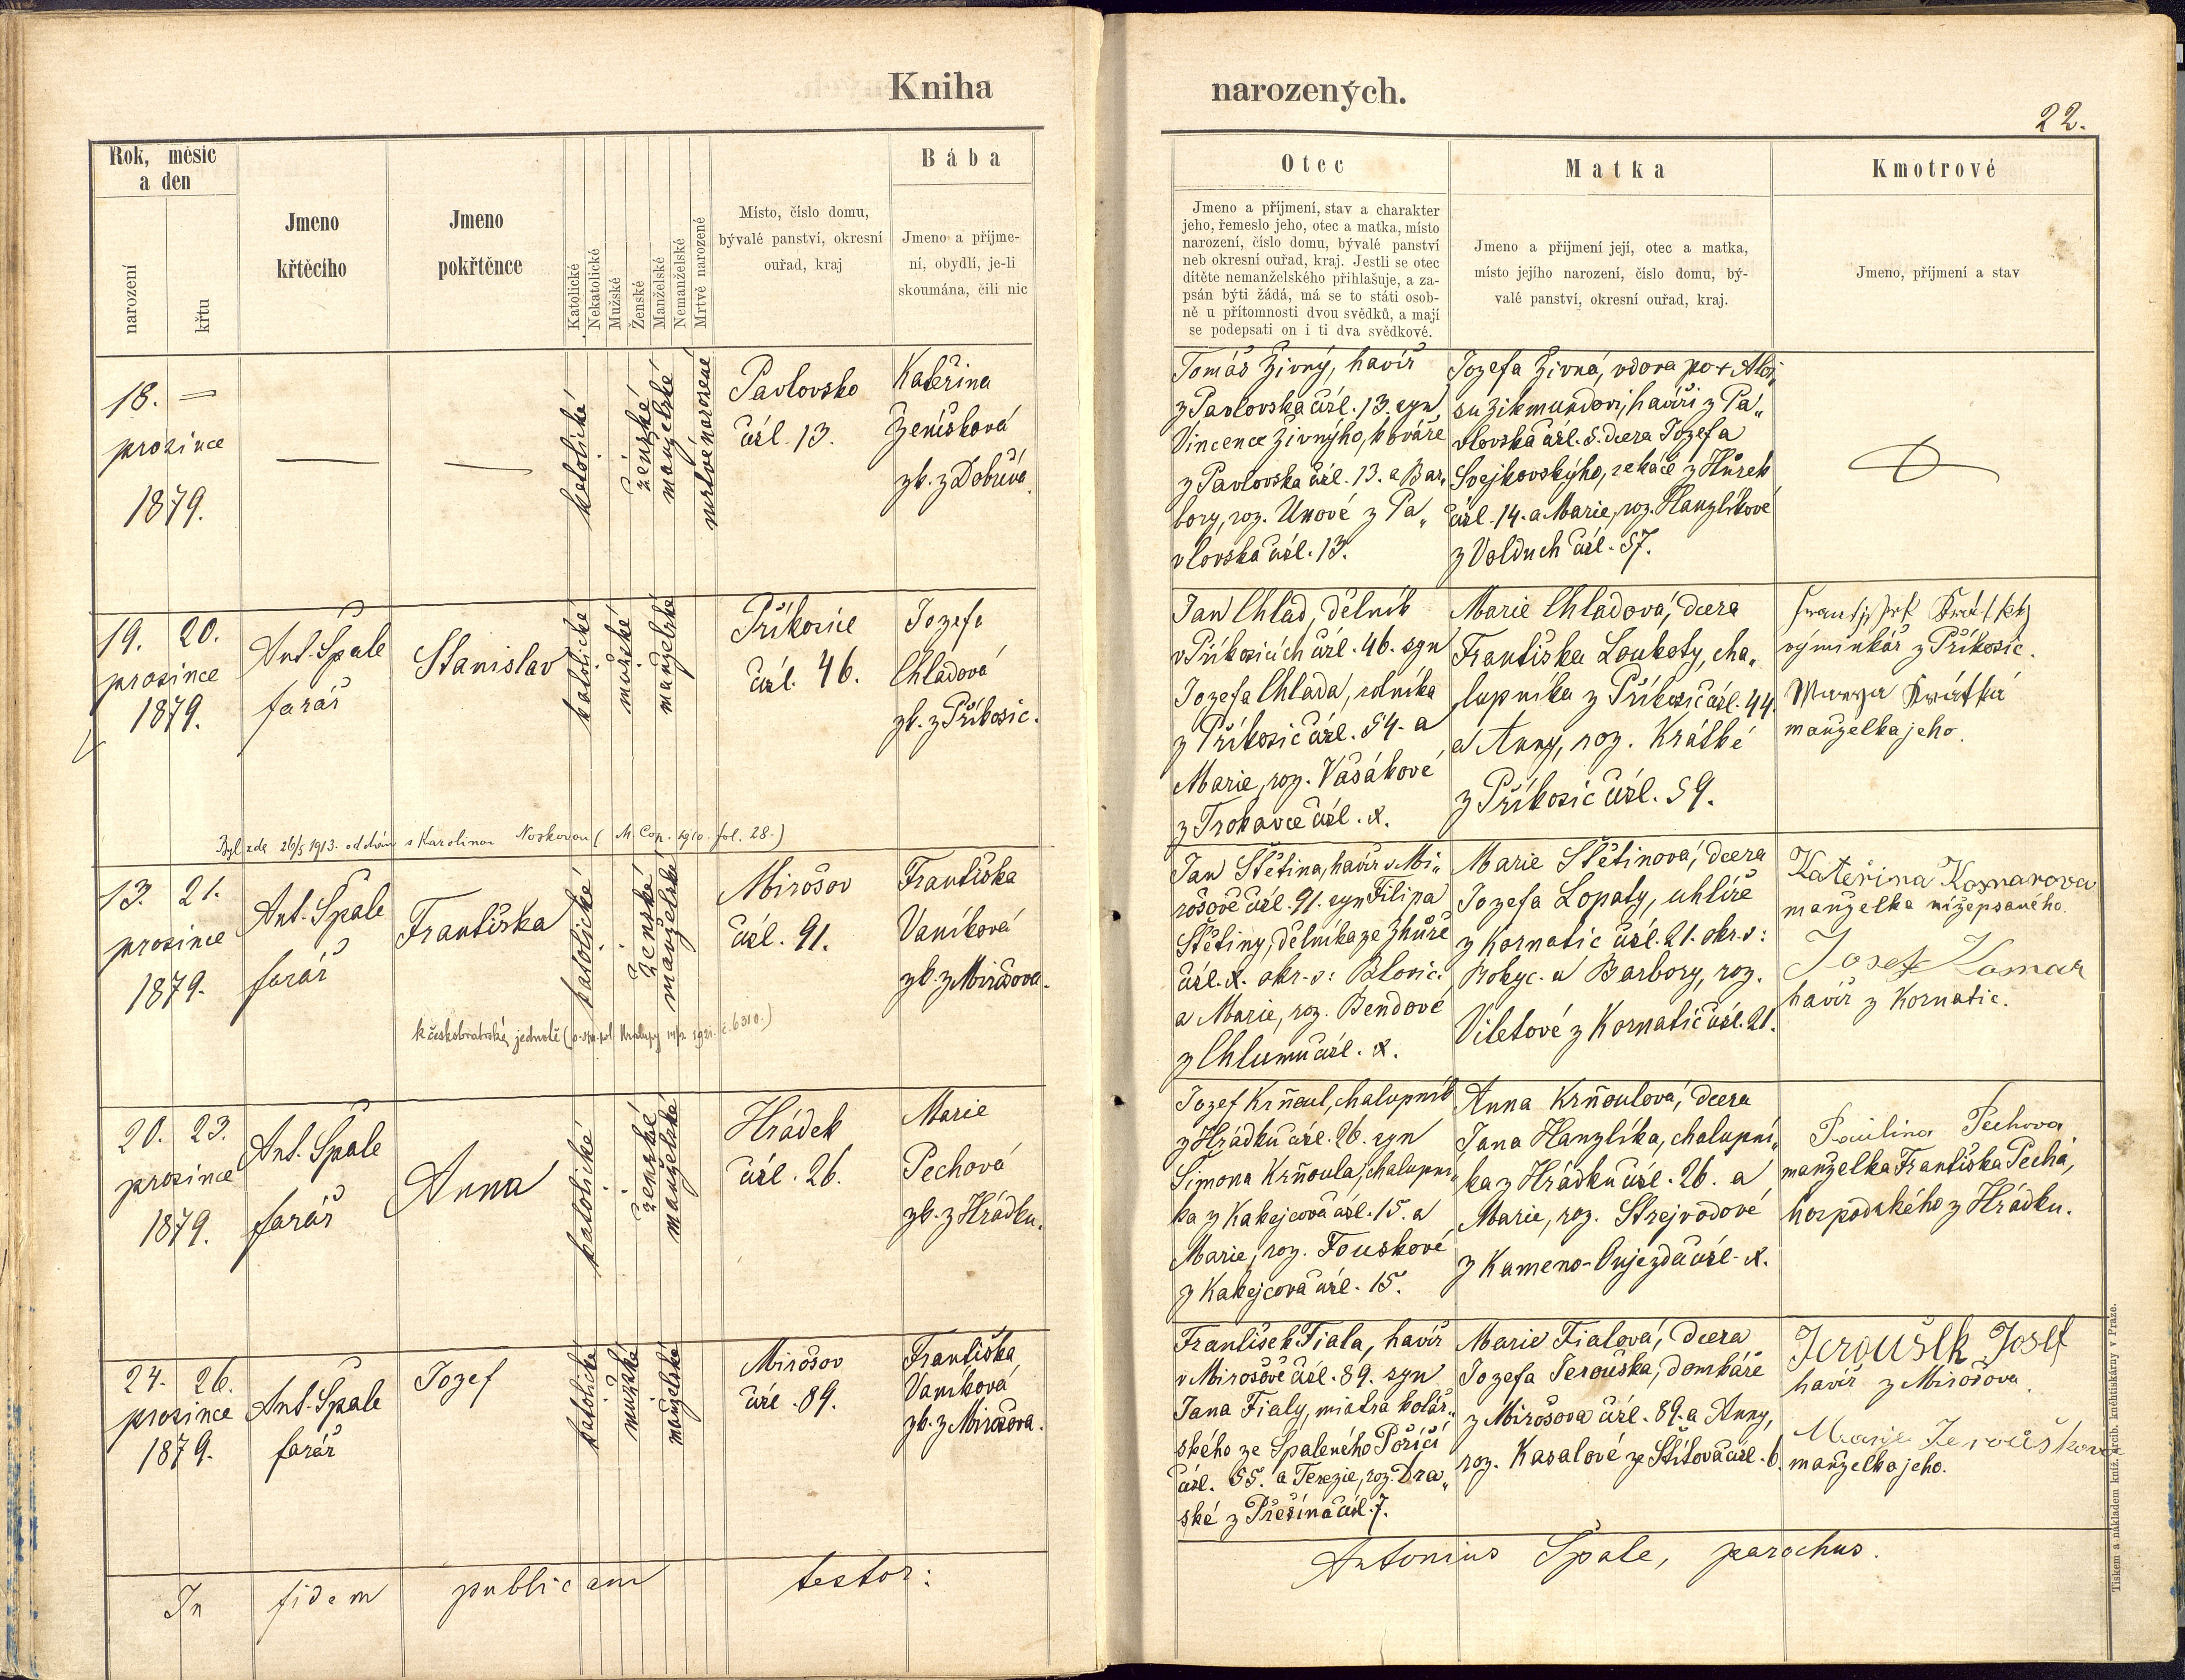 Kniha
narozených.
22.
Rok, měsíc
a den
narození
křtu
Jmeno
křtěcího
Jmeno
pokřtěnce
Katolické
Nekatolické
Mužské
Ženské
Manželské
Nemanželské
Mrtvě narozené
Místo, číslo domu,
bývalé panství, okresní
ouřad, kraj
Bába
Jmeno a příjme-
ní, obydlí, je-li
skoumána, čili nic
Otec
Jmeno a příjmení, stav a charakter
jeho, řemeslo jeho, otec a matka, místo
narození, číslo domu, bývalé panství
neb okresní ouřad, kraj. Jestli se otec
dítěte nemanželského přihlašuje, a za-
psán býti žádá, má se to státi osob-
ně u přítomnosti dvou svědků, a mají
se podepsati on i ti dva svědkové.
Matka
Jmeno a přijmení její, otec a matka,
místo jejího narození, číslo domu, bý-
valé panství, okresní ouřad, kraj.
Kmotrové
Jmeno, příjmení a stav
18. =
prosince
1879.
katolické
ženské
manželské
mrtvě narozené
Pavlovsko
čísl. 13.
Kateřina
Ženíšková
zk. z Dobříva
Tomáš Živný, havíř
z Pavlovska čísl. 13. syn
Vincence Živnýho, kováře
z Pavlovska čísl. 13. a Bar„
bory, roz. Unové z Pa„
vlovska čísl. 13.
Jozefa Živná, vdova po + Aloi„
su Zikmundovi, havíři z Pa„
vlovska čísl. 5. dcera Jozefa
Svejkovskýho, sekáče z Hůrek
čísl. 14. a Marie, roz. Hanzlíkové
z Volduch čísl. 57.
19. 20.
prosince
1879.
Ant. Špale
farář
Stanislav
katolické
mužské
manželské
Příkosice
čísl. 46.
Jozefa
Chladová
zk. z Příkosic.
Jan Chlad, dělník
v Příkosicích čísl. 46. syn
Jozefa Chlada, rolníka
z Příkosic čísl. 54. a
Marie, roz. Vašákové
z Trokavce čísl. x.
Marie Chladová, dcera
Františka Loukoty, cha„
lupníka z Příkosic čísl. 44.
a Anny, roz. Krátké
z Příkosic čísl. 59.
František Krátký
výminkář z Příkosic.
Marya Krátká
manželka jeho.
Byl zde 26/5 1913. oddán s Karolinou Noskovou (M. Cop. 1910. fol. 28.)
13. 21.
prosince
1879.
Ant. Špale
farář
Františka
katolické
ženské
manželské
Mirošov
čísl. 91.
Františka
Vaníková
zk. z Mirošova.
Jan Štětina, havíř v Mi„
rošově čísl. 91. syn Filipa
Štětiny, dělníka ze Zhůře
čísl. x. okr. v: Blovic.
a Marie, roz. Bendové
z Chlumu čísl. x.
Marie Štětinová, dcera
Jozefa Lopaty, uhlíře
z Kornatic čísl. 21. okr. v:
Rokyc. a Barbory, roz.
Viletové z Kornatic čísl. 21.
Kateřina Komarova
manželka nížepsaného.
Josef Komar
havíř z Kornatic.
k českobratrské jednotě
20. 23.
prosince
1879.
Ant. Špale
farář
Anna
katolické
ženské
manželské
Hrádek
čísl. 26.
Marie
Pechová
zk. z Hrádku.
Jozef Krňoul, chalupník
z Hrádku čísl. 26. syn
Šimona Krňoula, chalupní„
ka z Kakejcova čísl. 15. a
Marie, roz. Fouskové
z Kakejcova čísl. 15.
Anna Krňoulová, dcera
Jana Hanzlíka, chalupní„
ka z Hrádku čísl. 26. a
Marie, roz. Strejvodové
z Kameno-Oujezda čísl. x.
Paulina Pechova
manželka Františka Pecha,
hospodského z Hrádku.
24. 26.
prosince
1879.
Ant. Špale
farář
Jozef
katolické
mužské
manželské
Mirošov
čísl. 89.
Františka
Vaníková
zk. z Mirošova.
František Fiala, havíř
v Mirošově čísl. 89. syn
Jana Fialy, mistra kolář„
ského ze Spáleného Poříčí
čísl. 55. a Terezie, roz. Dra„
ské z Přešína čísl. 7.
Marie Fialová, dcera
Jozefa Jerouška, domkáře
z Mirošova čísl. 89. a Anny,
roz. Kasalové ze Štítova čísl. 6.
Jeroušek Josef
havíř z Mirošova.
Marie Jeroušková
manželka jeho.
In fidem publicam testor:
Antonius Špale, parochus.
Tiskem a nákladem kníž. arcib. knihtiskárny v Praze.